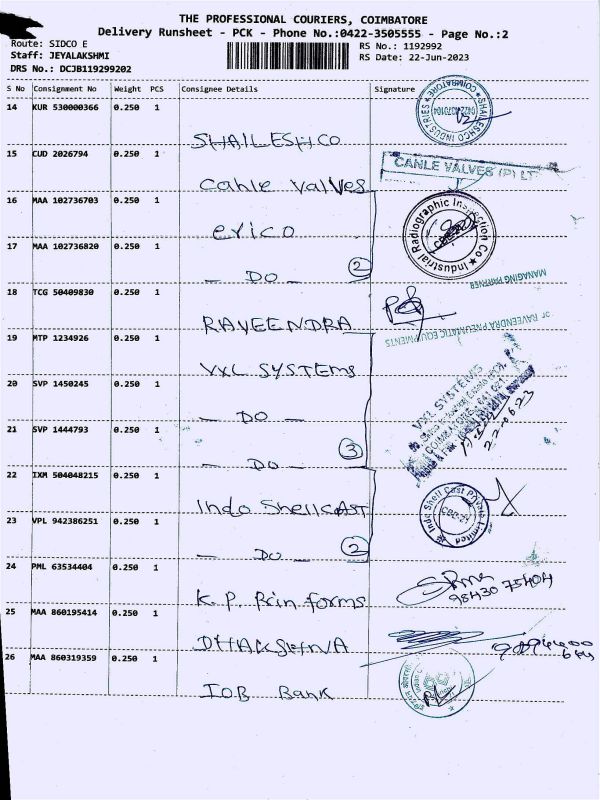 THE PROFESSIONAL COURIERS, COIMBATORE
Delivery Runsheet - PCK - Phone No.:0422-3505555 - Page No.:2
Route: SIDCO E
RS No.: 1192992
Staff: JEYALAKSHMI
RS Date: 22-Jun-2023
DRS No.: DCJB119299202
S No Consignment No Weight PCS Consignee Details Signature
14 KUR 530000366 0.250 1
SHAILESHCO
SHAILESHCO INDUSTRIES COIMBATORE
15 CUD 2026794 0.250 1
Cahle Valves
CANLE VALVES (P) LT
16 MAA 102736703 0.250 1
erico
Industrial Radiographic Inspection Co
17 MAA 102736820 0.250 1
- DO - 2
MANAGING PARTNER
18 TCG 50409830 0.250 1
RAVEENDRA
or RAVEENDRA PNEUMATIC EQUIPMENTS
19 MTP 1234926 0.250 1
VXL SYSTEMS
VXL SYSTEMS
20 SVP 1450245 0.250 1
- DO -
22.06.23
21 SVP 1444793 0.250 1
- DO - 3
22 IXM 504048215 0.250 1
Indo ShellCAST
Indo Shell Cast Private Limited
CBE-21
23 VPL 942386251 0.250 1
- DO - 2
24 PML 63534404 0.250 1
K.P. Prin forms
98430 75404
25 MAA 860195414 0.250 1
DHAKSHNA
26 MAA 860319359 0.250 1
IOB Bank